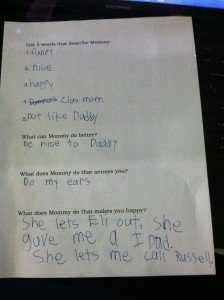 COMPAQ
List 5 words that describe Mommy:
1. funny
2. nice
3. happy
4. Clas mom
5. not like Daddy
What can Mommy do better?
be nice to Daddy
What does Mommy do that annoys you?
Do my ears
What does Mommy do that makes you happy?
She lets Eli out, She
gave me a I Pad.
She lets me call Russell.